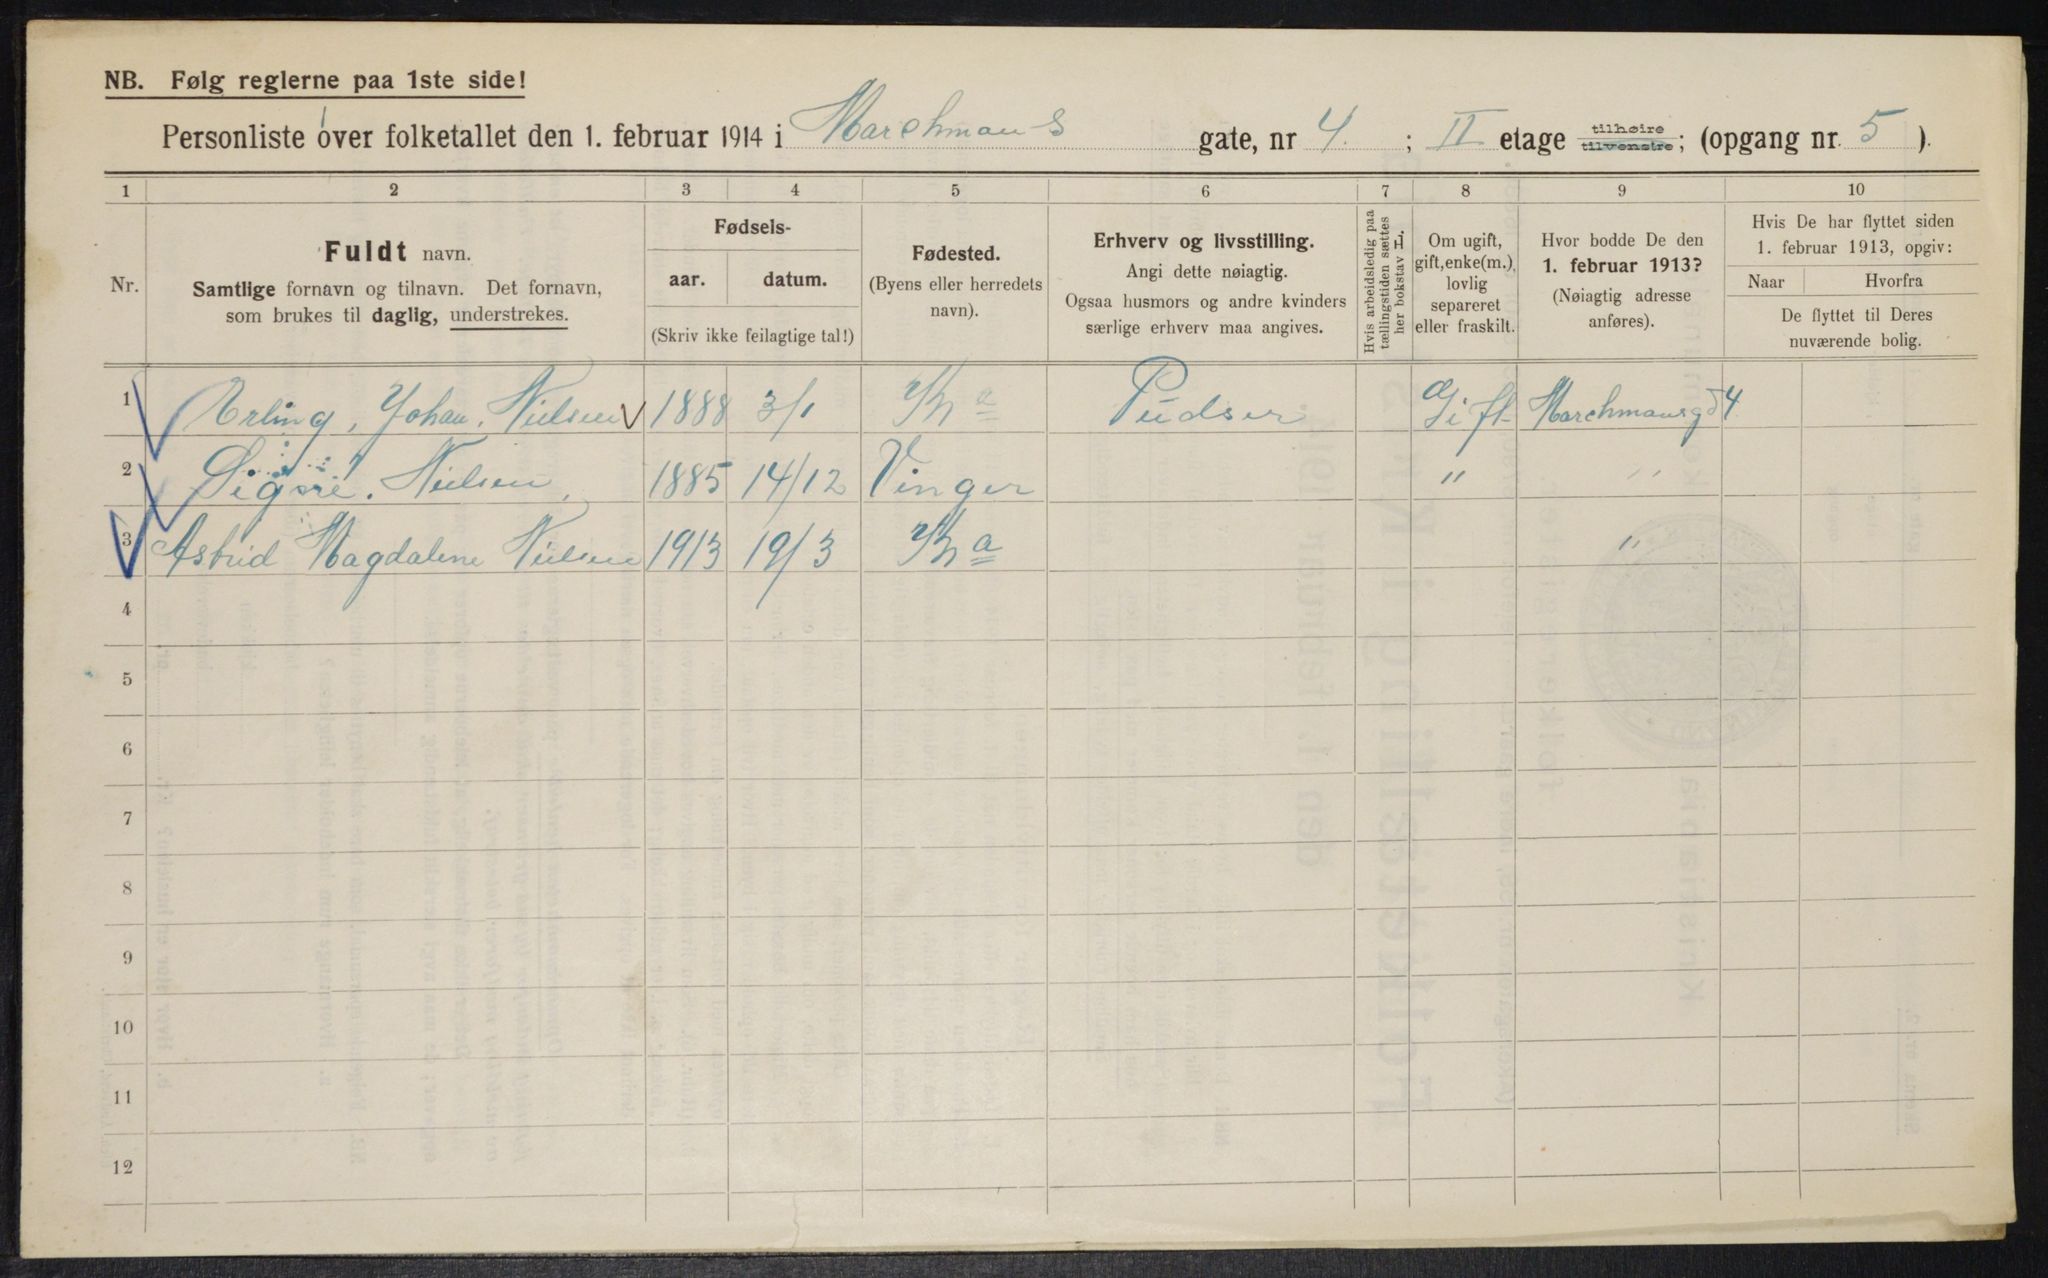 NB. Følg reglerne paa 1ste side!
Personliste over folketallet den 1. februar 1914 i Marchmans gate, nr 4. ; II etage tilhøire tilvenstre; (opgang nr. 5 ).
1 2 3 4 5 6 7 8 9 10
Nr.
Fuldt navn.
Samtlige fornavn og tilnavn. Det fornavn,
som brukes til daglig, understrekes.
Fødsels-
aar. datum.
(Skriv ikke feilagtige tal!)
Fødested.
(Byens eller herredets
navn).
Erhverv og livsstilling.
Angi dette nøiagtig.
Ogsaa husmors og andre kvinders
særlige erhverv maa angives.
Hvis arbeidsledig paa
tællingstiden sættes
her bokstav H.
Om ugift,
gift, enke(m.),
lovlig
separeret
eller fraskilt.
Hvor bodde De den
1. februar 1913?
(Nøiagtig adresse
anføres).
Hvis De har flyttet siden
1. februar 1913, opgiv:
Naar Hvorfra
De flyttet til Deres
nuværende bolig.
1 Erling, Johan, Nielsen 1888 3/1 Kra Pudser Gift Marchmansgd 4
2 Signe. Nielsen, 1885 14/12 Vinger " "
3 Astrid Magdalene Nielsen 1913 19/3 Kra "
4
5
6
7
8
9
10
11
12